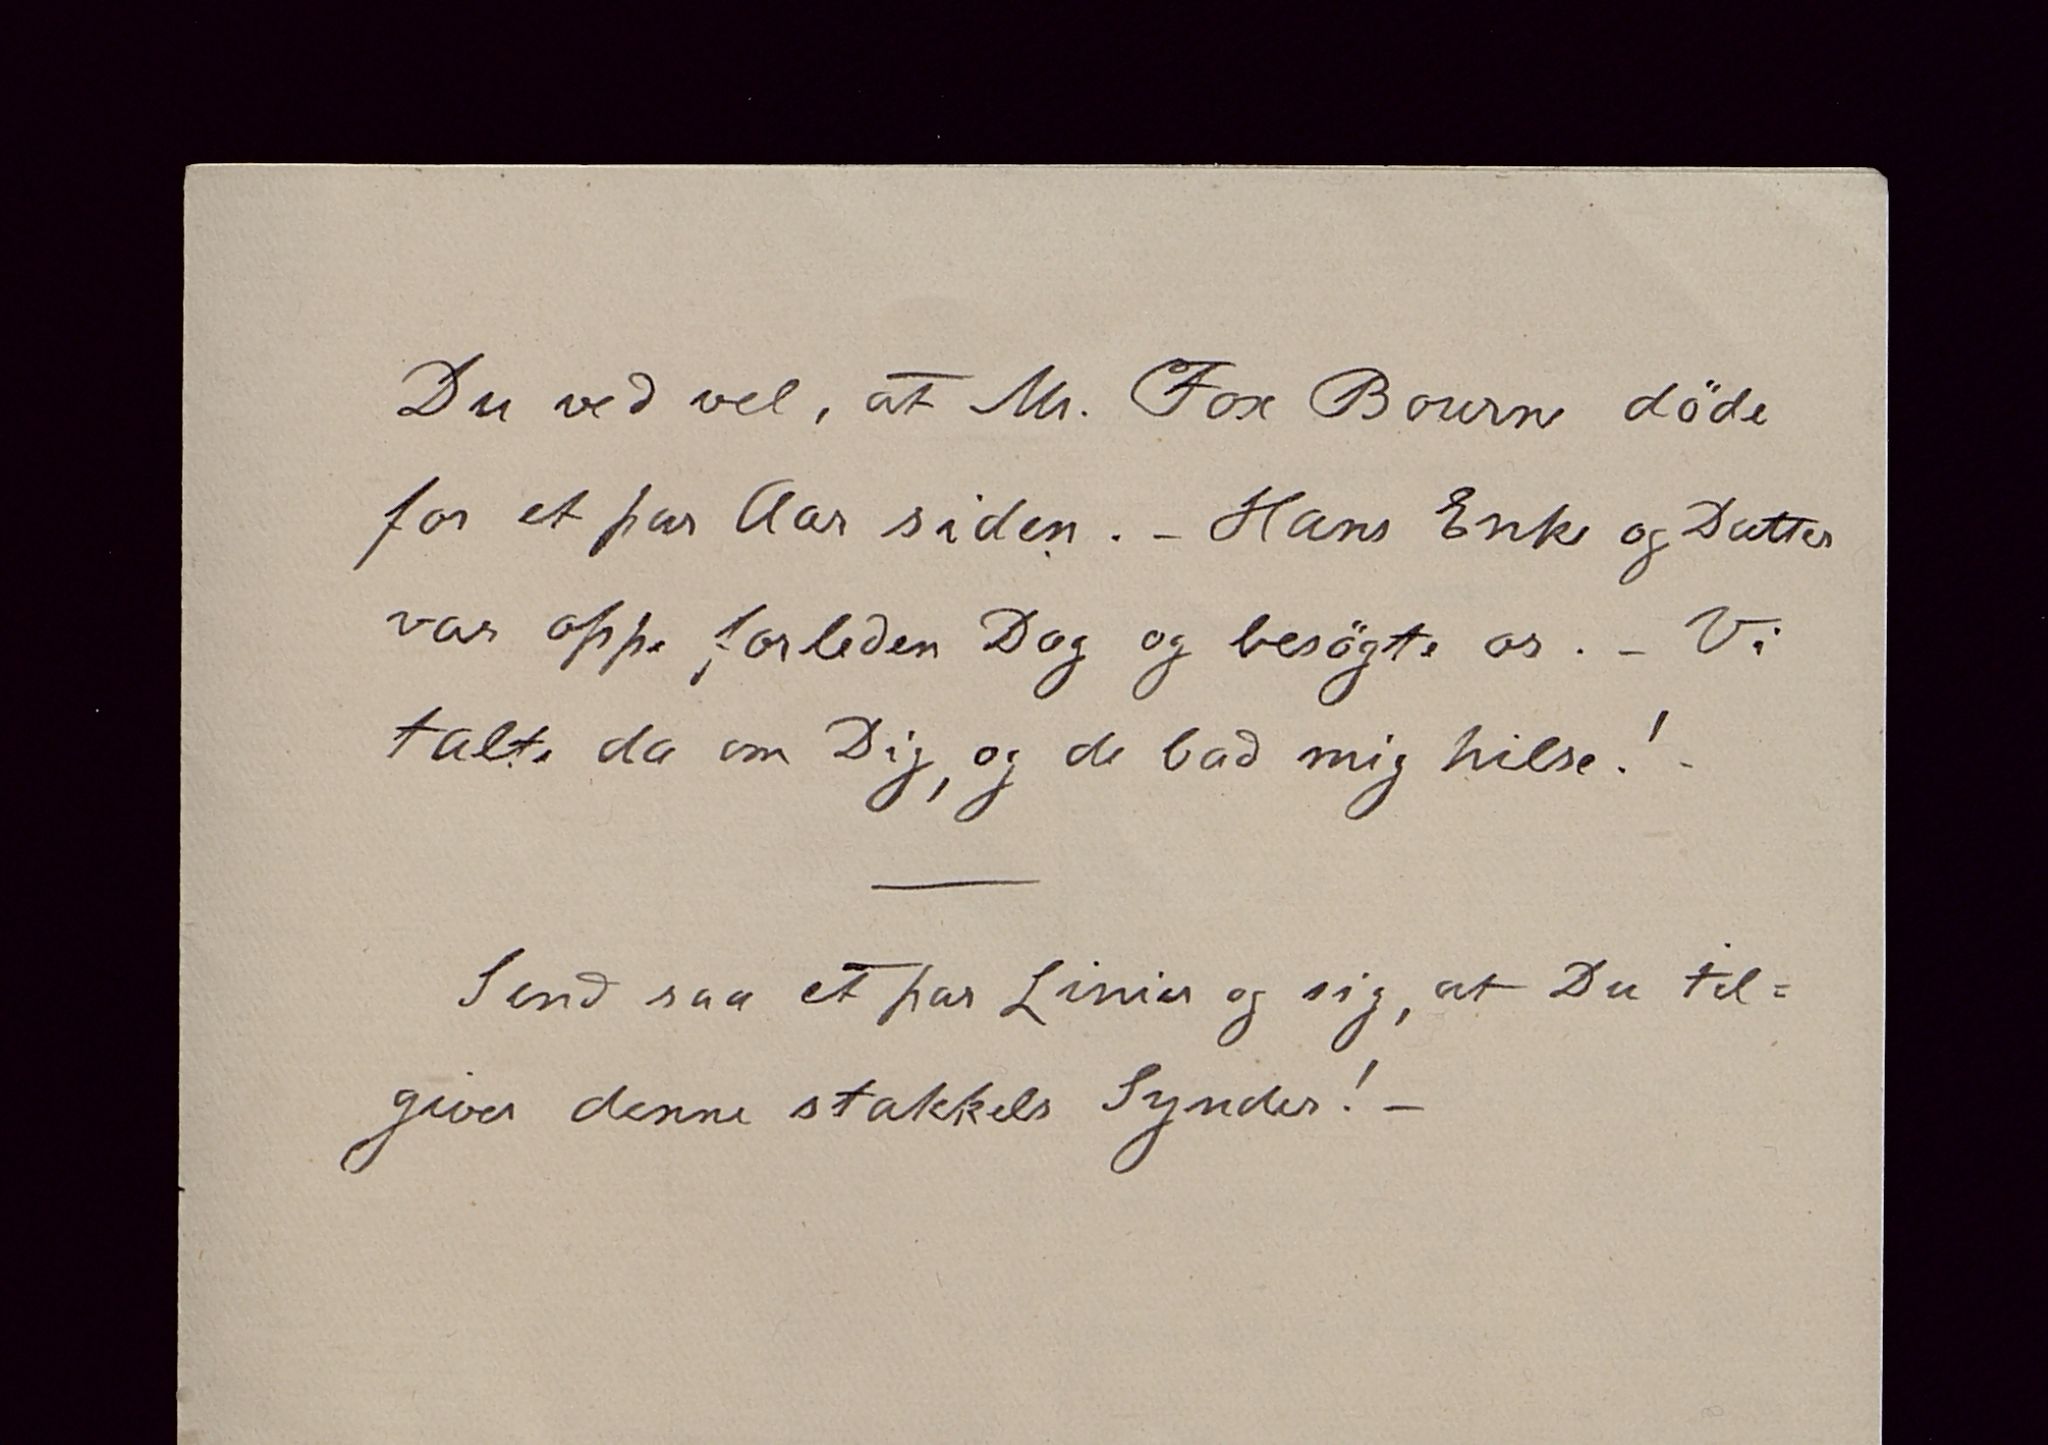 Du ved vel, at Mr. Fox Bourne döde
for et par Aar siden. - Hans Enke og Datter
var oppe forleden Dag og besögte os. - Vi
talte da om Dig, og de bad mig hilse! -
Send saa et par Linier og sig, at Du til=
giver denne stakkels Synder! -